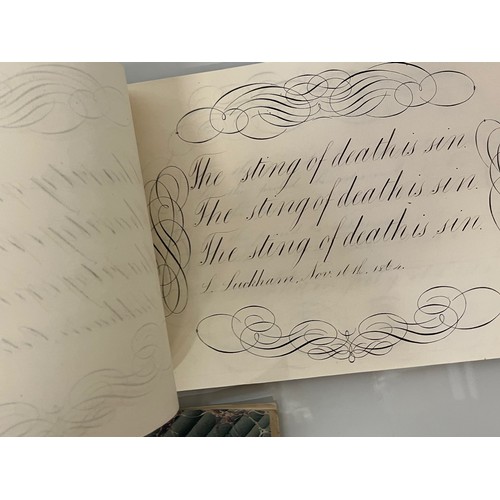 The sting of death is sin.
The sting of death is sin.
The sting of death is sin.
Nov. 16th. 1864.